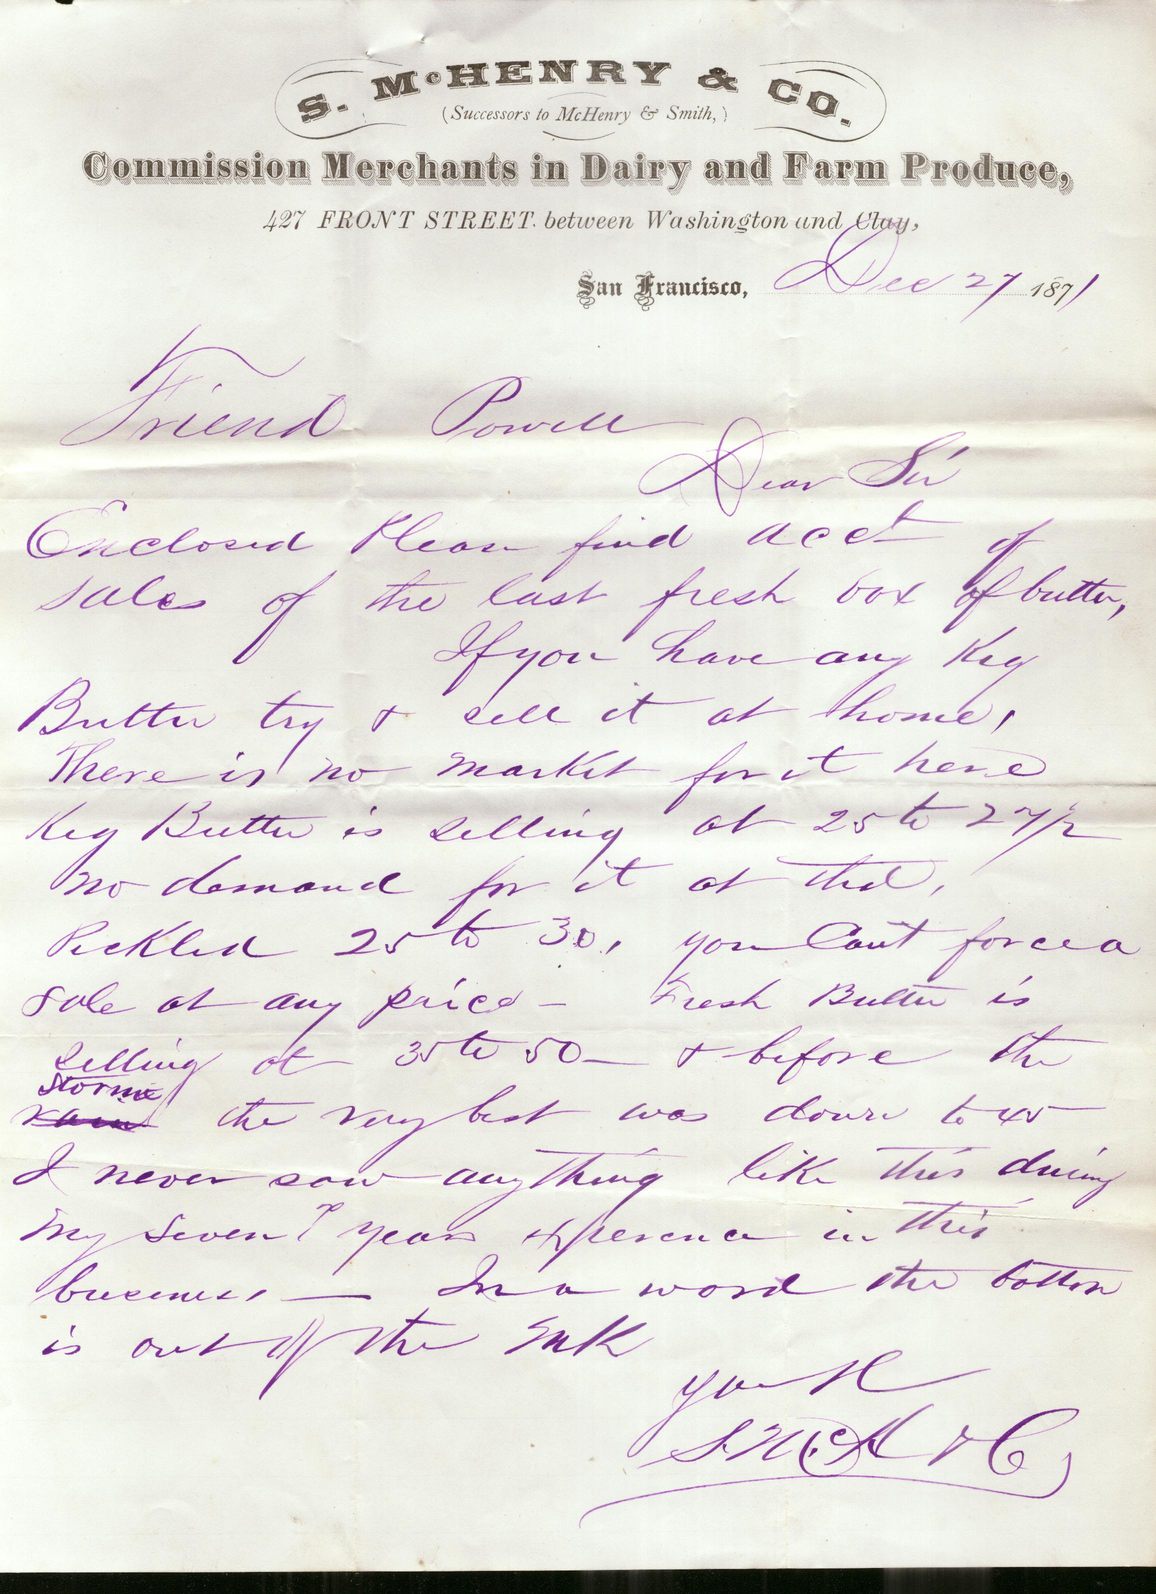 S. McHENRY & CO.
(Successors to McHenry & Smith,)
Commission Merchants in Dairy and Farm Produce,
427 FRONT STREET. between Washington and Clay,
San Francisco, Dec 27 1871
Friend Powell
Dear Sir
Enclosed Please find acct of
sales of the last fresh box of butter,
If you have any Keg
Butter try & sell it at home,
There is no market for it here
Keg Butter is selling at 25 to 27/2
no demand for it at that,
Pickled 25 to 30, you Cant force a
sale at any price - Fresh Butter is
selling at 35 to 50 - & before the
storme
the very best was down to 45
I never saw anything like this during
my seven years experence in this
business, — In a word the bottom
is out of the
S. McH & Co